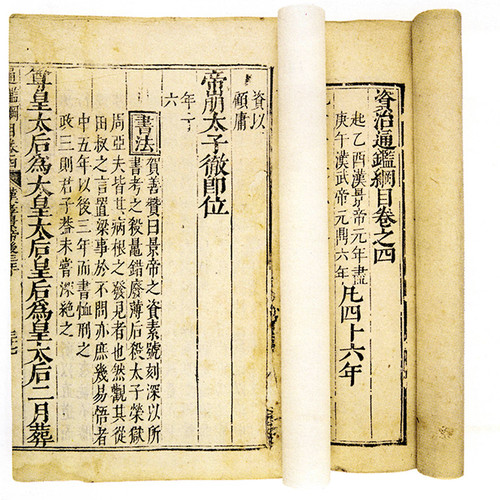 資治通鑑綱目卷之四
起乙酉漢景帝元年盡
庚午漢武帝元鼎六年
凡四十六年
資以
顧庸
帝崩太子徹即位
年十
六
書法
賀善贊曰景帝之資素號刻深以所
書考之殺鼂錯廢薄后役太子榮獄
周亞夫皆其病根之發見者也然觀其從
田叔之言置梁事於不問亦庶幾易悟者
中五年以後三年而書恤刑之
政三則君子葢未嘗深絶之
尊皇太后爲太皇太后皇后爲皇太后二月葬
通鑑綱目卷四